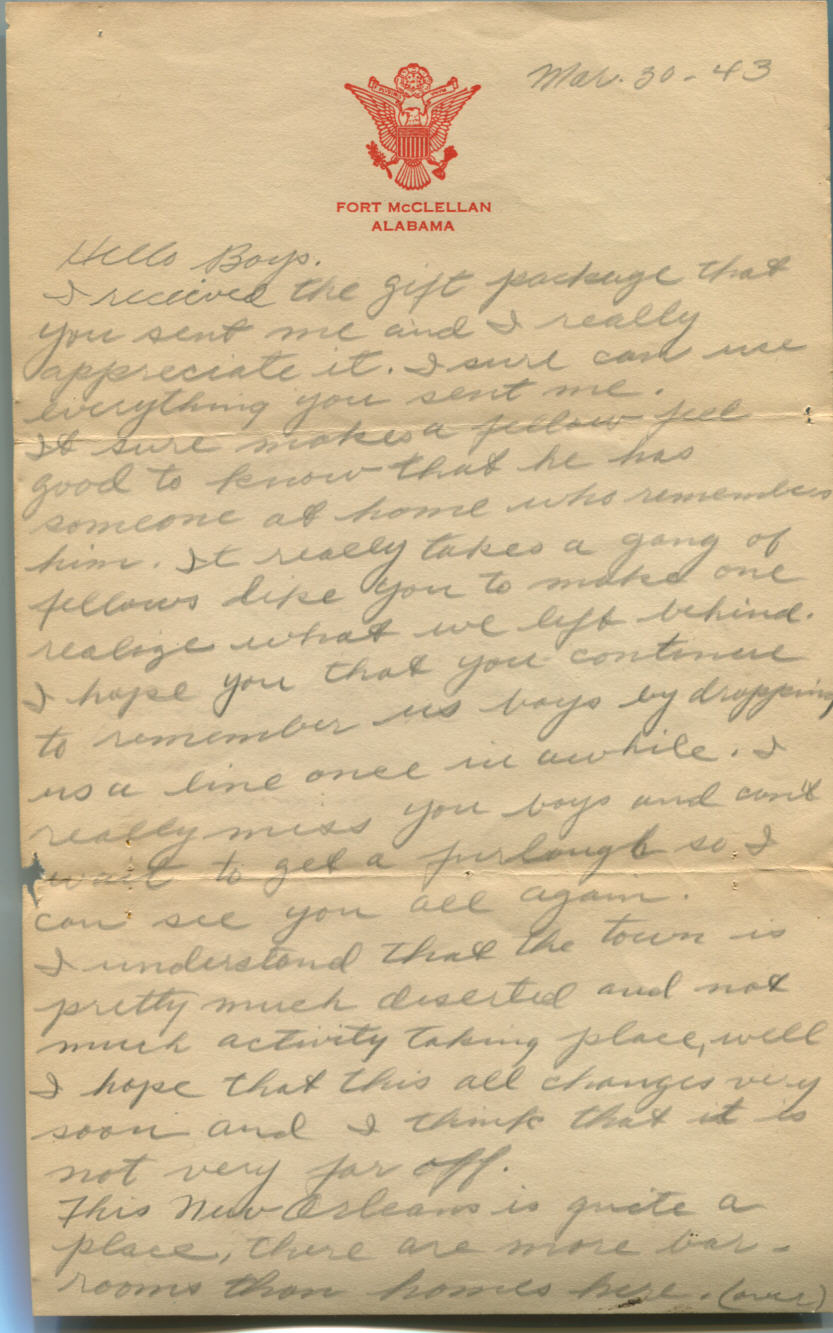 Mar. 30 - 43
FORT McCLELLAN
ALABAMA
Hello Boys.
I recieved the gift package that
you sent me and I really
appreciate it. I sure can use
everything you sent me.
It sure makes a fellow feel
good to know that he has
someone at home who remembers
him. It really takes a gang of
fellows like you to make one
realize what we left behind.
I hope you that you continue
to remember us boys by dropping
us a line once in awhile. I
really miss you boys and can't
wait to get a furlough so I
can see you all again.
I understand that the town is
pretty much deserted and not
much activity taking place, well
I hope that this all changes very
soon and I think that it is
not very far off.
This New Orleans is quite a
place, there are more bar-
rooms than homes here. (over)